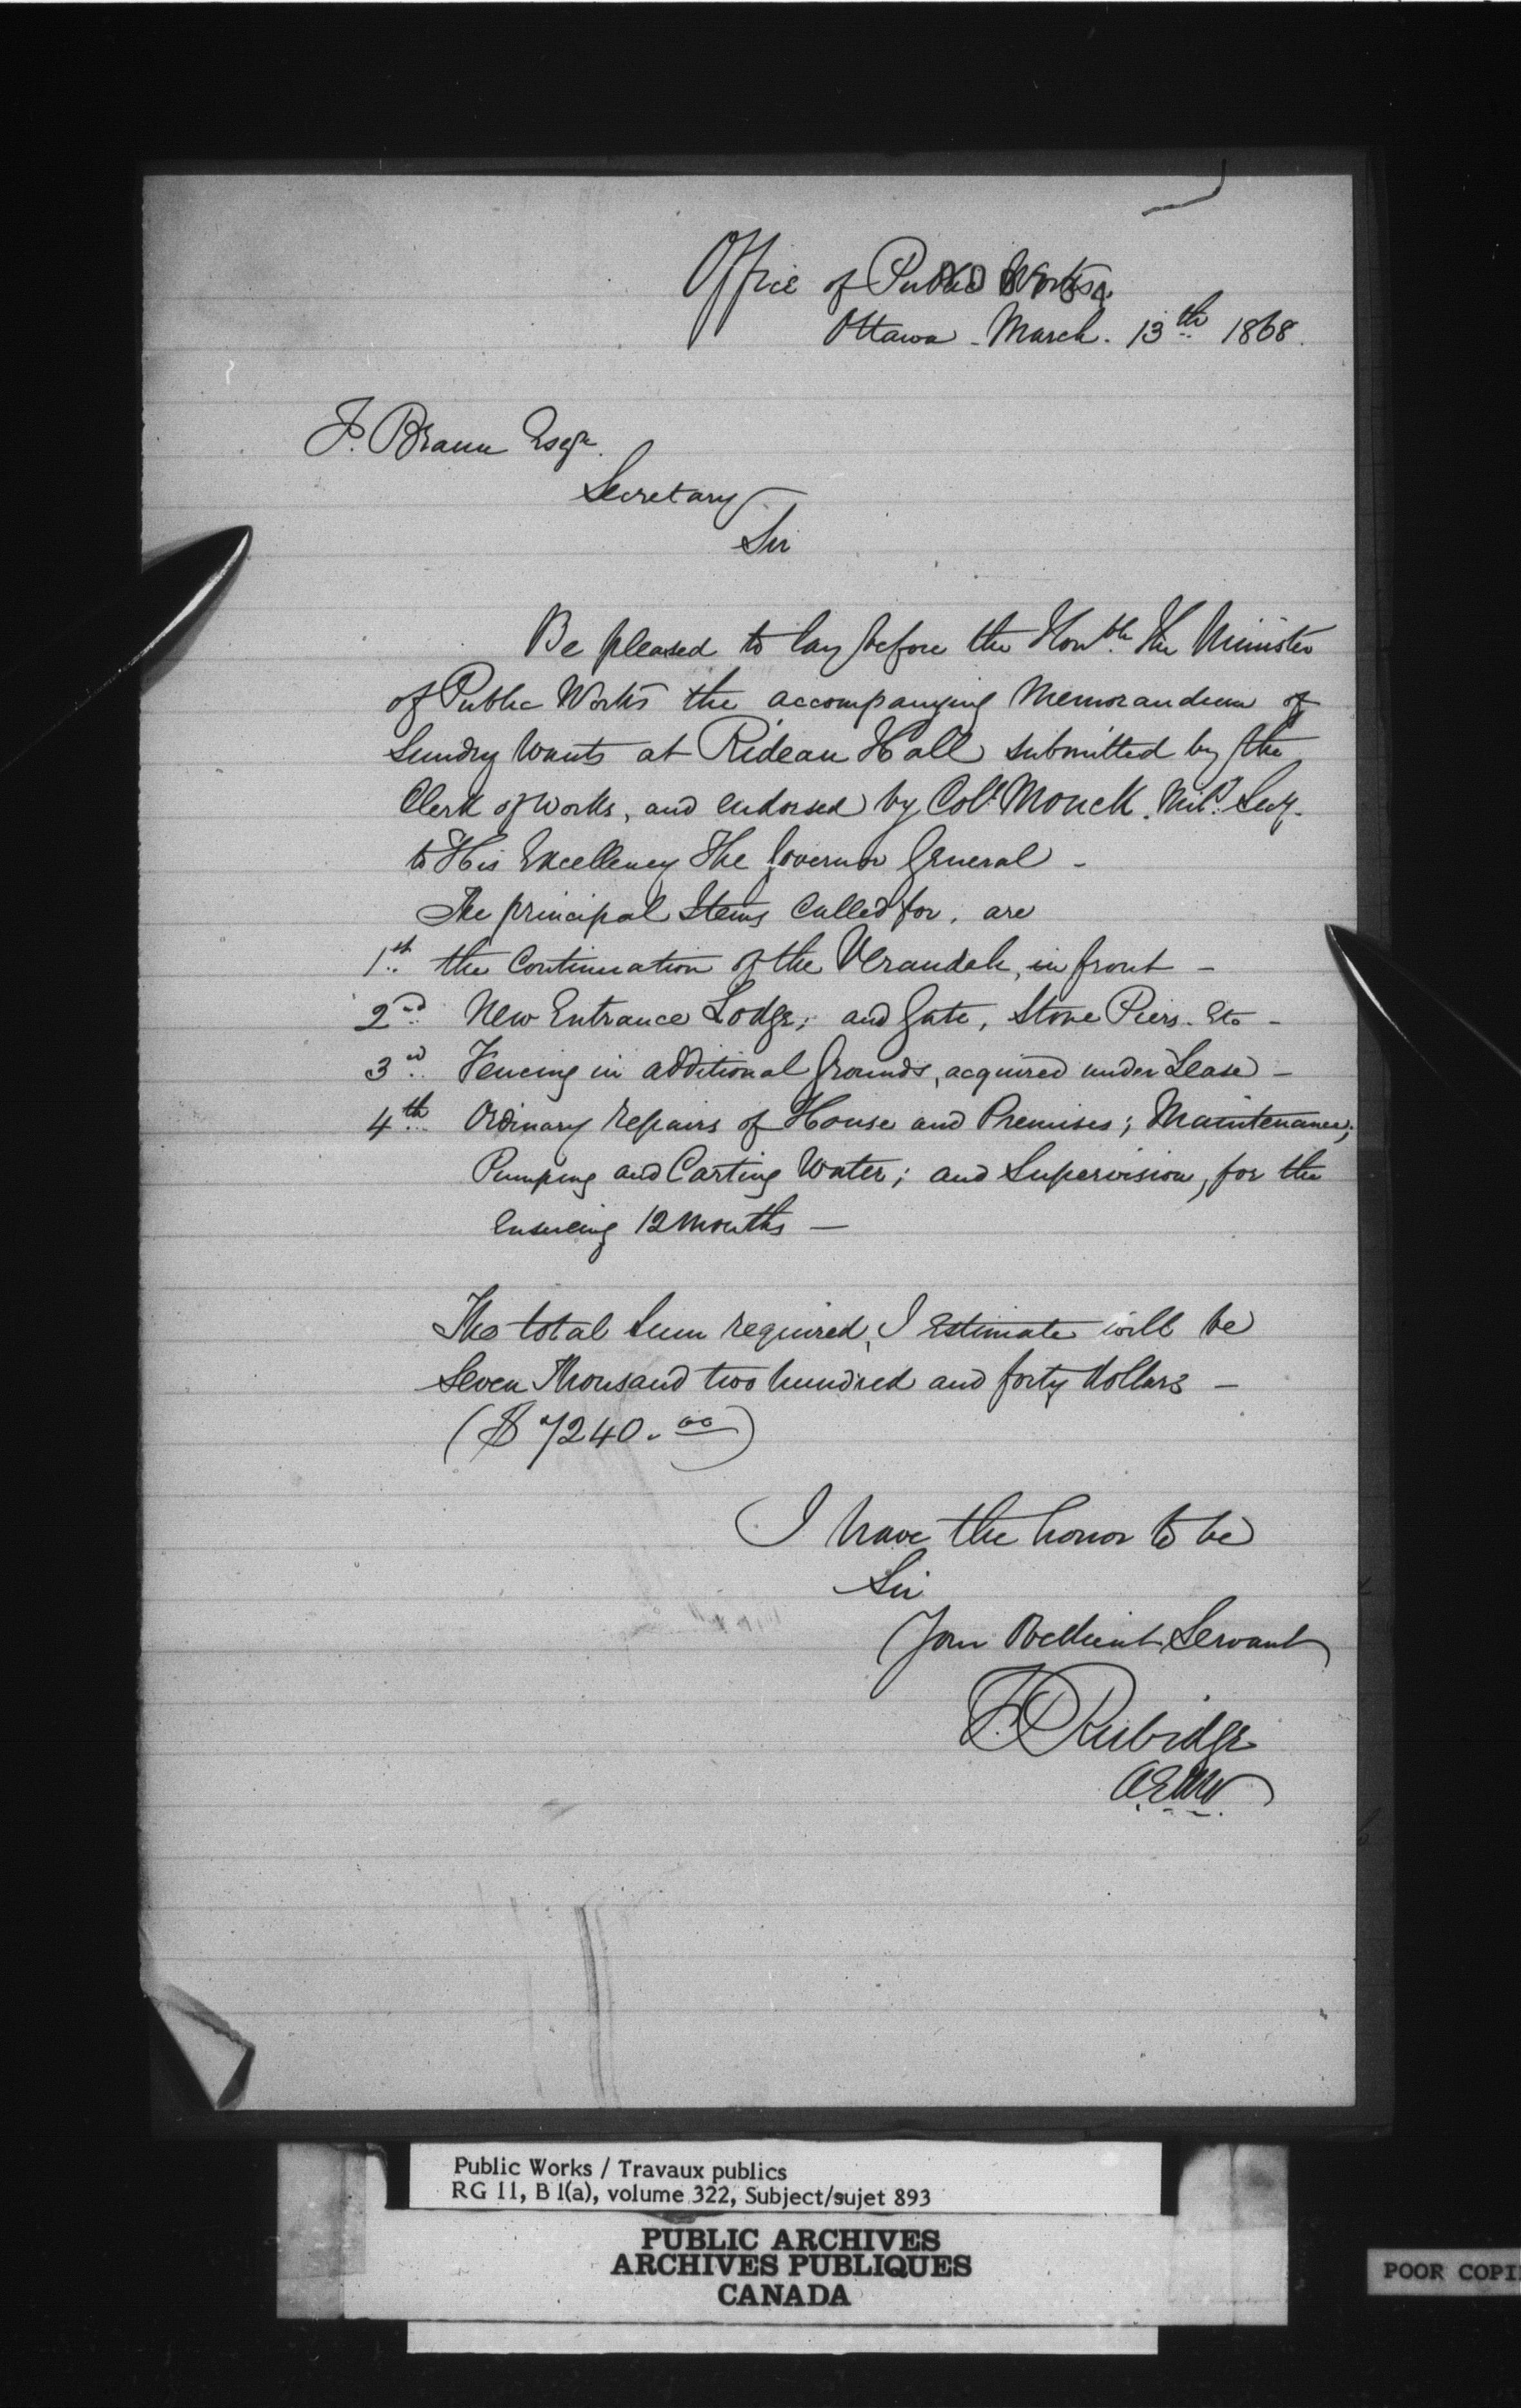 Office of Public Works
Ottawa - March. 13th 1868.
F. Braun Esqr.
Secretary
Sir
Be pleased to lay before the Honble. The Minister
of Public Works the accompanying Memorandum of
Sundry Wants at Rideau Hall submitted by the
Clerk of Works, and endorsed by Col. Monck. Mily. Secy.
to His Excellency The Governor General -
The principal Items Called for, are
1st. the Continuation of the Verandah, in front -
2nd. New Entrance Lodge; and Gate, Stone Piers. Etc -
3rd. Fencing in additional Grounds, acquired under Lease -
4th. Ordinary repairs of House and Premises; Maintenance;
Pumping and Carting Water; and Supervision, for the
ensueing 12 months -
The total Sum required, I estimate will be
Seven Thousand two hundred and forty dollars -
($7240.00)
I have the honor to be
Sir
Your Obedient Servant
F.P. Rubidge
Public Works / Travaux publics
RG 11, B 1(a), volume 322, Subject/sujet 893
PUBLIC ARCHIVES
ARCHIVES PUBLIQUES
CANADA
POOR COPI